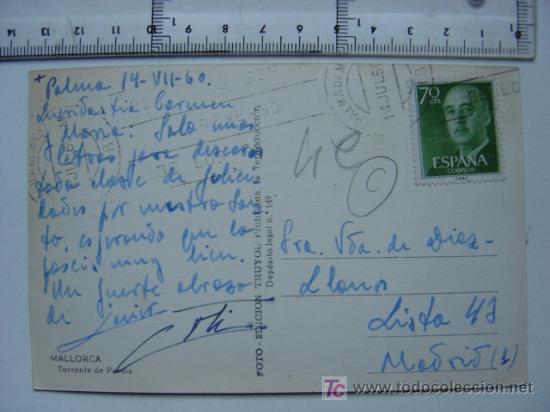 + Palma 14-VII-60.
Queridas tía Carmen
y María: Solo unas
letras para desearos
toda clase de felici
dades por vuestro San
to, esperando que lo
paséis muy bien.
Un fuerte abrazo
de
MALLORCA
Torrente de Pareis
FOTO - EDICION TRUYOL Prohibida la reproducción
Depósito legal n.º 149
4€
C
70
CTS
ESPAÑA
CORREOS
Sra. Vda. de Diez-
Llanos
Lista 47
Madrid (1)
TC
www.todocoleccion.net